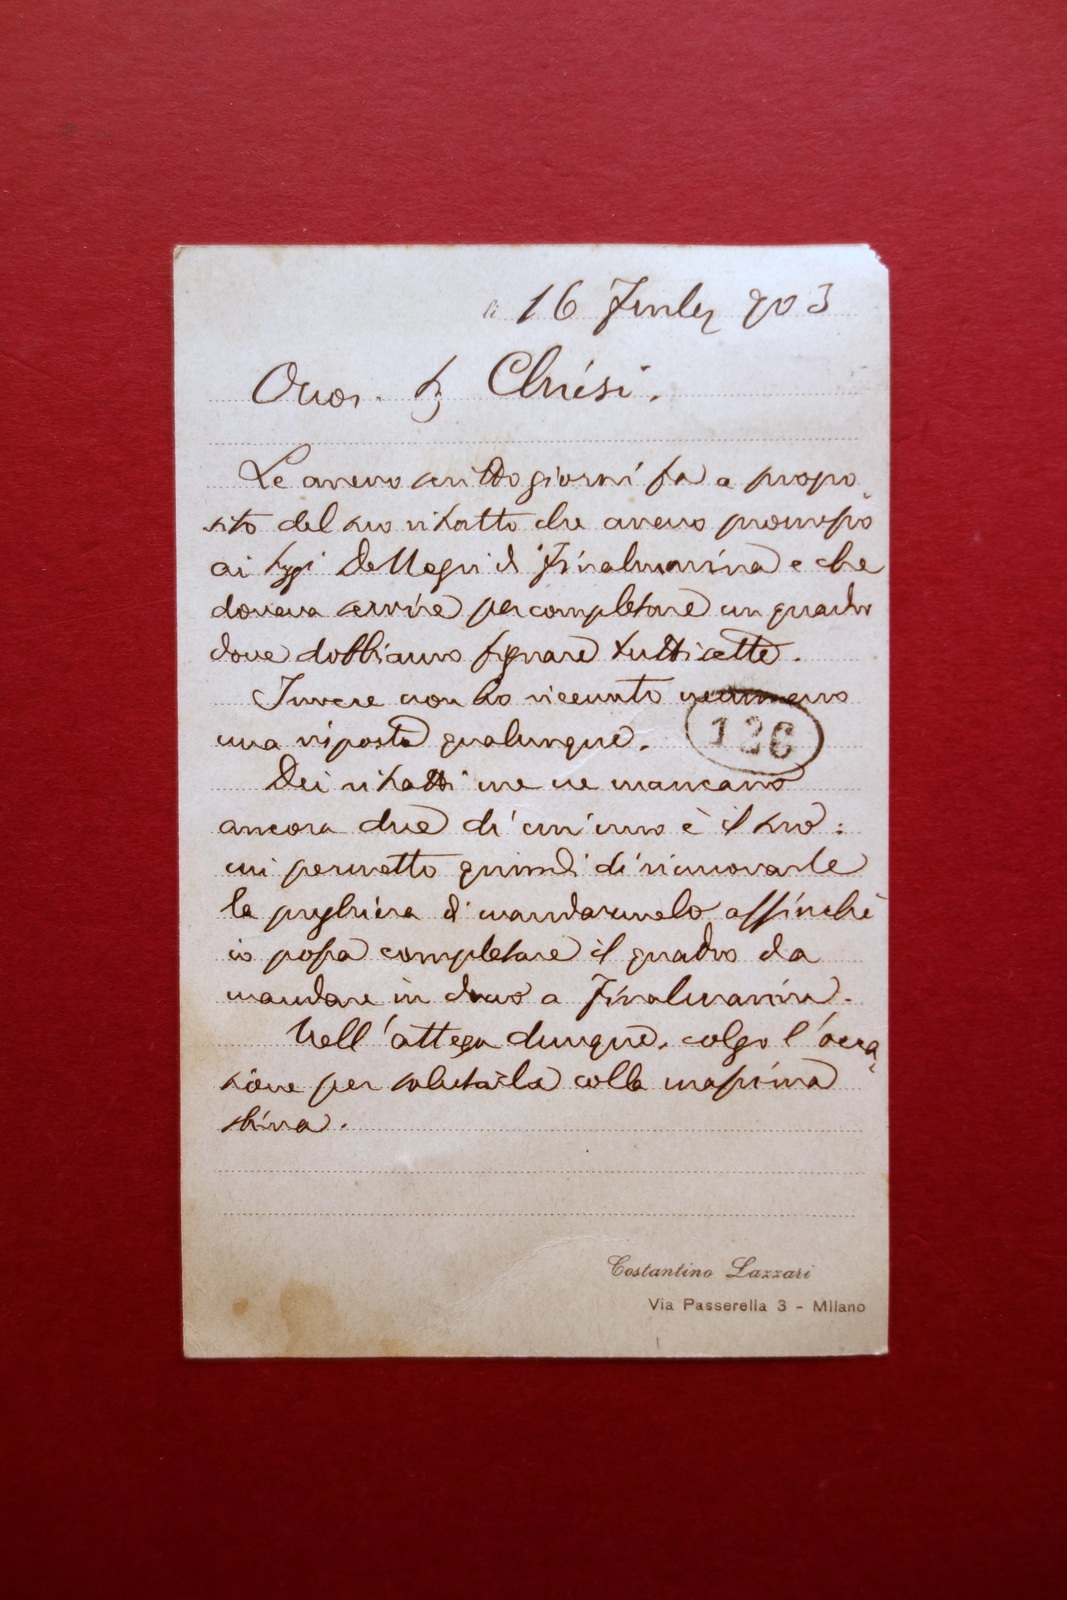 li 16 903
Onor. Sig Chiesi.
Le avevo scritto giorni fa a propo
sito del suo ritratto che avevo promesso
ai Sigi De Negri di Finalmarina e che
doveva servire per completare un quadro
dove dobbiamo figurare tutti sette.
Invece non ho ricevuto nemmeno
una risposta qualunque.
126
Dei ritratti me ne mancano
ancora due di cui uno è il suo:
mi permetto quindi di rinnovarle
la preghiera di mandarmelo affinchè
io possa completare il quadro da
mandare in dono a Finalmarina.
Nell'attesa dunque, colgo l'occa
sione per salutarla colla massima
stima.
Costantino Lazzari
Via Passerella 3 - Milano